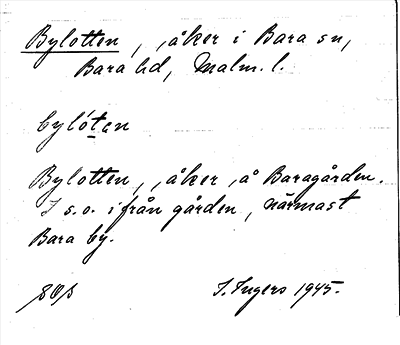 Bylotten, åker i Bara sn,
Bara hd, Malm. l.
bylótan
Bylotten, åker å Baragården.
I s.o. ifrån gården, närmast
Bara by.
I. Ingers 1945.